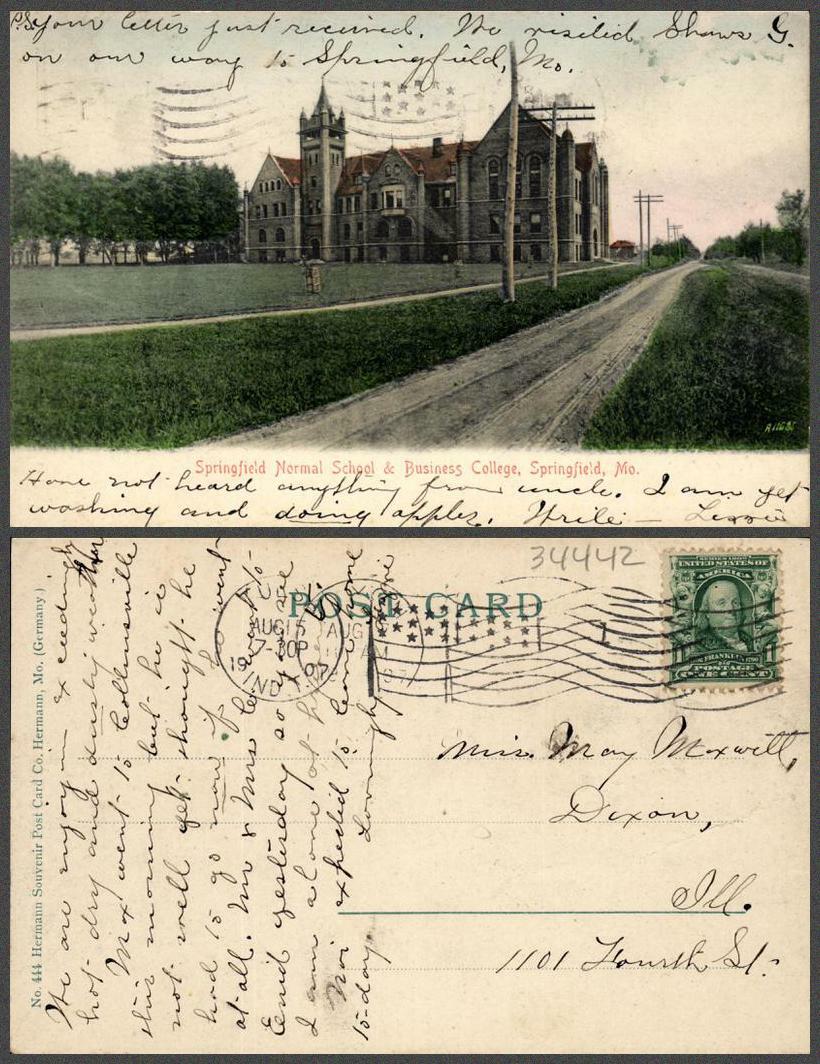 P.S. Your letter just received. We visited Shaws G.
on our way to Springfield, Mo.
A11685
Springfield Normal School & Business College, Springfield, Mo.
Have not heard anything from uncle. I am yet
washing and doing apples. Write — Lessie
34442
POST CARD
SERIES 1902
UNITED STATES OF
AMERICA
FRANKLIN
POSTAGE
ONE CENT
AUG 15
7-30P
1907
IND. T.
AUG
AM
No. 444 Hermann Souvenir Post Card Co. Hermann, Mo. (Germany)
We are enjoying exceedingly
hot dry and dusty weather
Max went to Collinsville
this morning but he is
not well yet thought he
had to go now if he went
at all. Mr & Mrs C went to
Enid yesterday so you see
I am alone at home.
Noi expected to come home
to-day. Lovingly
Miss. May Maxwell,
Dixon,
Ill.
1101 Fourth St.